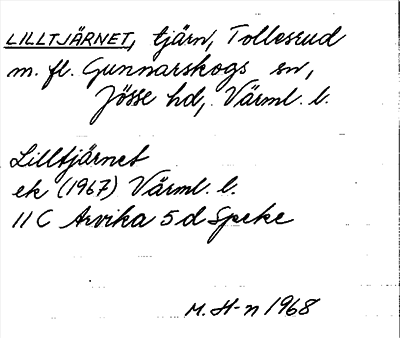 LILLTJÄRNET, tjärn, Tollesrud
m. fl. Gunnarskogs sn,
Jösse hd, Värml. l.
Lilltjärnet
ek (1967) Värml. l.
11 C Arvika 5 d Speke
M. H-n 1968